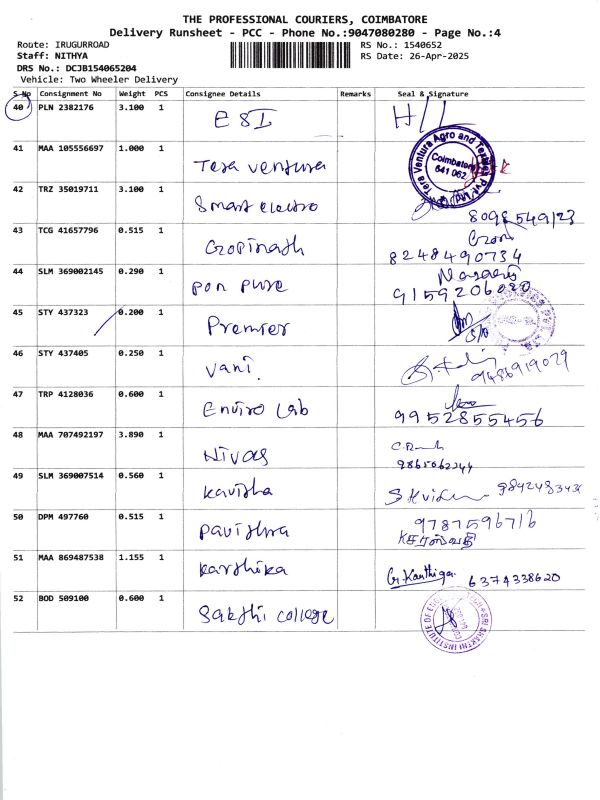 THE PROFESSIONAL COURIERS, COIMBATORE
Delivery Runsheet - PCC - Phone No.:9047080280 - Page No.:4
Route: IRUGURROAD
RS No.: 1540652
Staff: NITHYA
RS Date: 26-Apr-2025
DRS No.: DCJB154065204
Vehicle: Two Wheeler Delivery
S No Consignment No Weight PCS Consignee Details Remarks Seal & Signature
40 PLN 2382176 3.100 1 ESI
41 MAA 105556697 1.000 1 Tera ventura Tera Ventura Agro and Coimbatore 641 062
42 TRZ 35019711 3.100 1 Smart electro 8098549123
43 TCG 41657796 0.515 1 Gopinath 8248490734
44 SLM 369002145 0.290 1 Pon pure 9159206020
45 STY 437323 0.200 1 Premier
46 STY 437405 0.250 1 Vani. 9486919029
47 TRP 4128036 0.600 1 Enviro Lab 9952855456
48 MAA 707492197 3.890 1 Nivas 9865062244
49 SLM 369007514 0.560 1 Kavisha
50 DPM 497760 0.515 1 Pavithra 9787596716
கசரஸ்வதி
51 MAA 869487538 1.155 1 Karthika G.Karthiga 6374338620
52 BOD 509100 0.600 1 Sakthi college